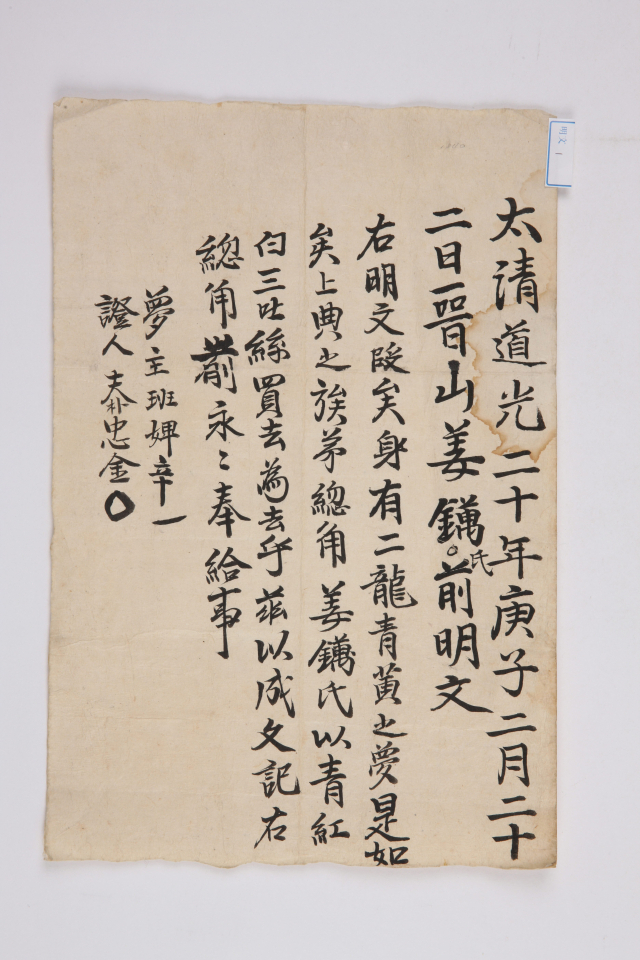 太淸道光二十年庚子二月二十
二日晉山姜鏋氏前明文
右明文段矣身有二龍青黃之夢是如
矣上典之族弟總角姜鏋氏以青紅
白三吐絲買去為去乎茲以成文記右
總角前永〻奉給事
夢主班婢辛一
證人夫朴忠金
明文 1